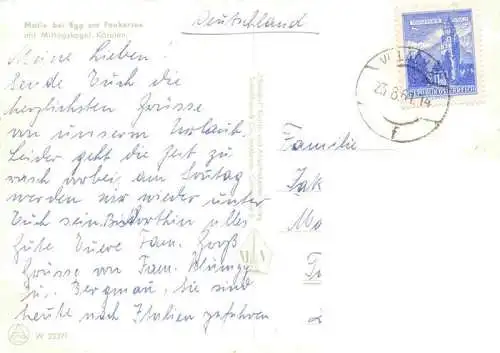 Motiv bei Egg am Faakersee
mit Mittagskogel, Kärnten
Deutschland
Meine Lieben!
Sende Euch die
herzlichsten Grüsse
von unserem Urlaub.
Leider geht die Zeit zu
rasch vorbei, am Sonntag
werden wir wieder unter
Euch sein. Bis dorthin alles
Gute Euere Fam. Groß
Grüsse von Fam.
u. Bergmann, Sie sind
heute nach Italien gefahren
VILLACH
23.8.61.14
f
REPUBLIK ÖSTERREICH
Familie
Jak
Mo
W 2237/1